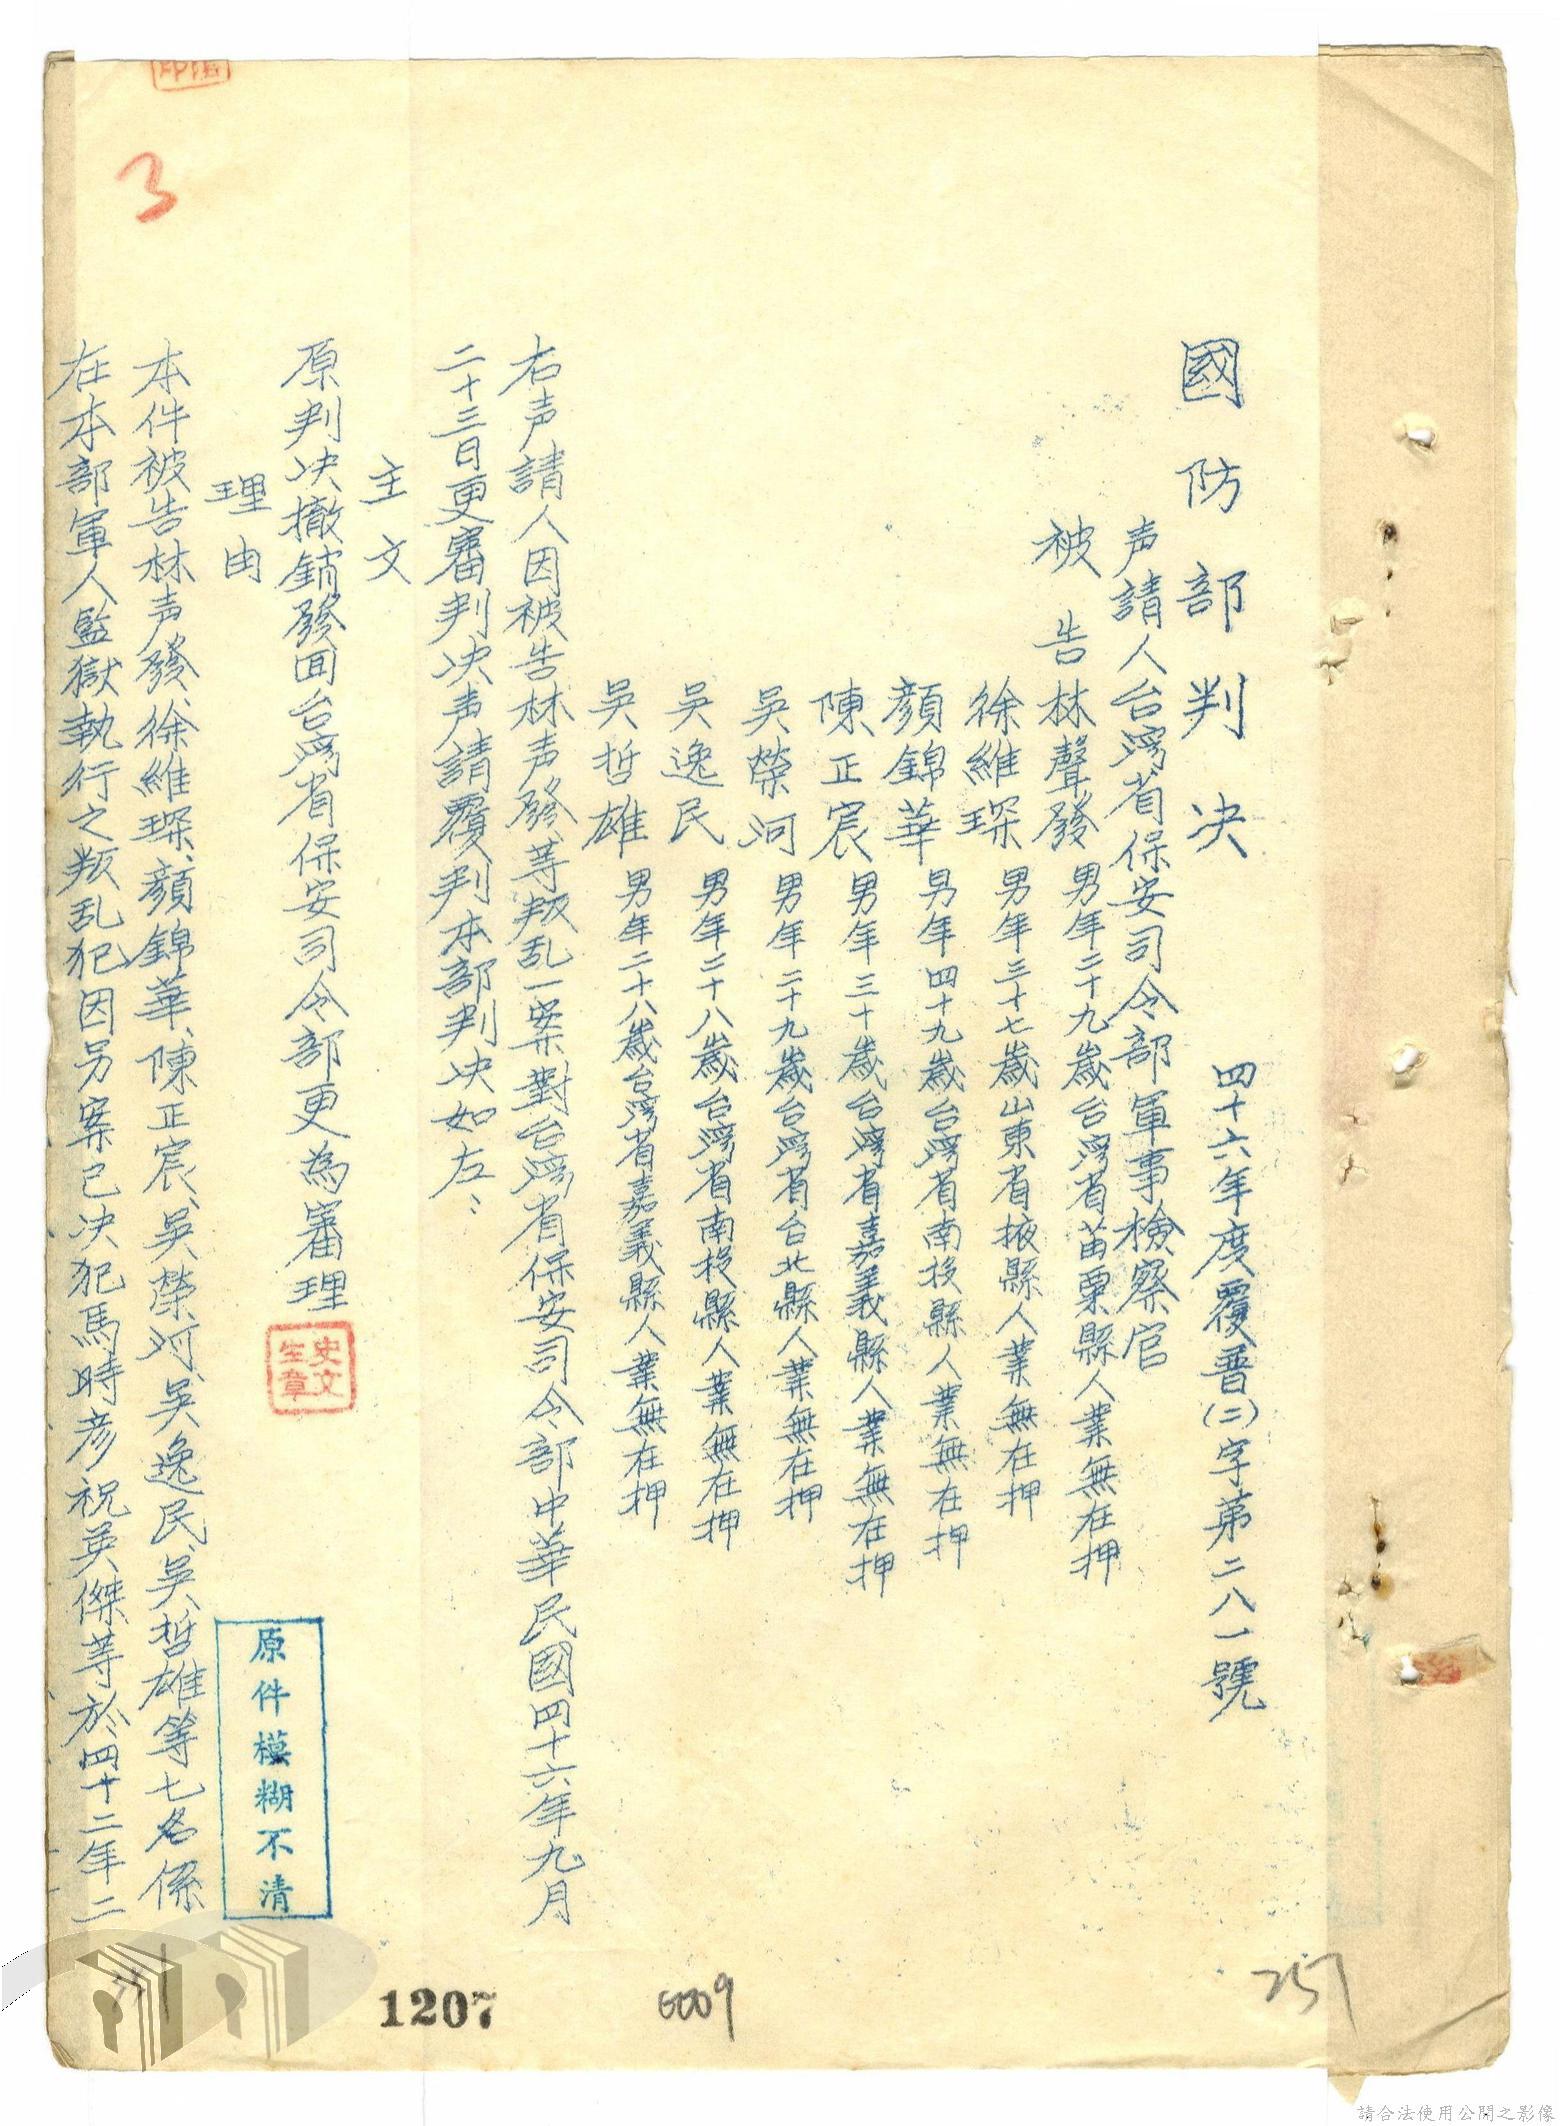 國防部判決
四十六年度覆普(二)字第二八一號
声請人台灣省保安司令部軍事檢察官
被告林聲發男年二十九歲台灣省苗栗縣人業無在押
徐維琛男年三十七歲山東省掖縣人業無在押
顏錦華男年四十九歲台灣省南投縣人業無在押
陳正宸男年三十歲台灣省嘉義縣人業無在押
吳榮河男年二十九歲台灣省台北縣人業無在押
吳逸民男年二十八歲台灣省南投縣人業無在押
吳哲雄男年二十八歲台灣省嘉義縣人業無在押
右声請人因被告林声發等叛乱一案對台灣省保安司令部中華民國四十六年九月
二十三日更審判決声請覆判本部判決如左:
主文
原判決撤銷發回台灣省保安司令部更為審理
史文生章
理由
本件被告林声發、徐維琛、顏錦華、陳正宸、吳榮河、吳逸民、吳哲雄等七名係
在本部軍人監獄執行之叛乱犯因另案已決犯馬時彥祝英傑等於四十二年二
原件模糊不清
3
1207
0009
257
請合法使用公開之影像